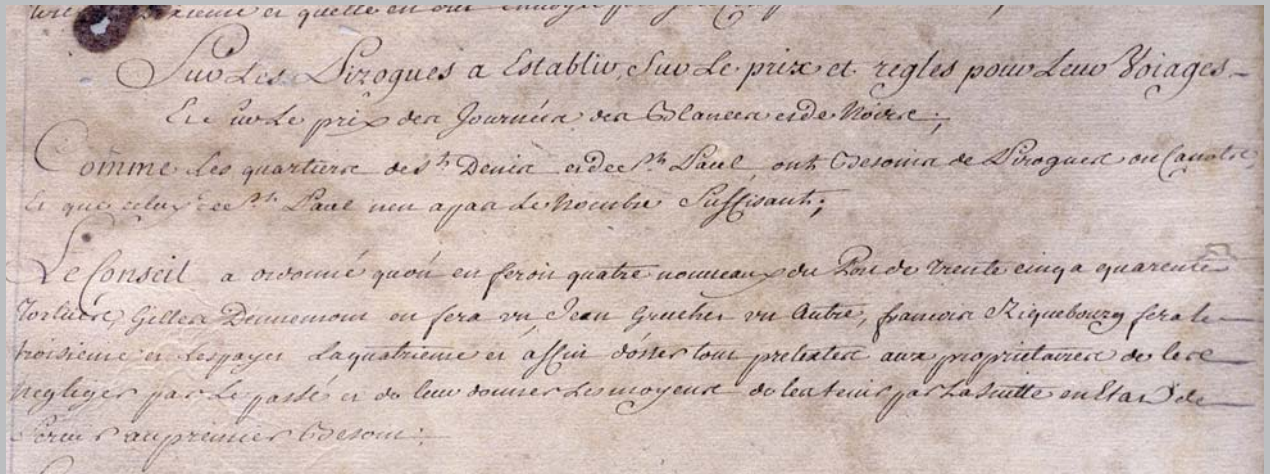 et quelle en ont
Sur Les Pirogues a Establir, Sur Le prix et regles pour Leur Voiages
Et sur Le prix des Journées des Blancs et de Noirs;
Comme Les quartiers de st. Denis et de st. Paul, ont Besoins de Pirogues ou Canotes,
Et que celuy de st. Paul n'en a pas Le Nombre Suffisant;
Le Conseil a ordonné qu'on en feroit quatre nouveaux du Port de trente cinq a quarente
Tortues, Gilles Dennemont en fera un, Jean Gruchet un Autre, francois Riquebourg fera le
troisieme et Lespayer La quatrieme et affin d'oster tous pretextes aux proprietaires de les
negliger par Le passé et de leur donner Les moyens de les tenir par La Suitte en Etat de
Servir au premier Besoin.